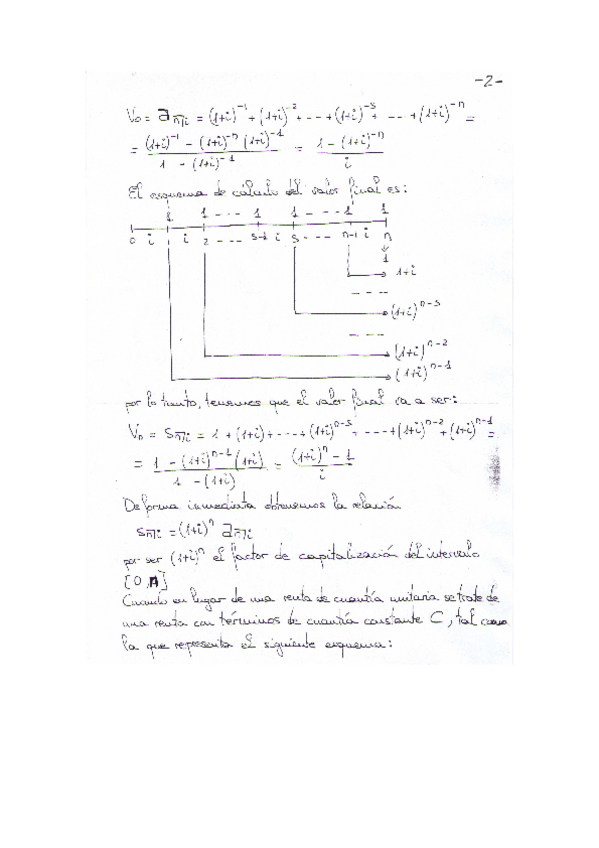 -2-
V₀ = a_n̅|i = (1+i)^-1 + (1+i)^-2 + --- + (1+i)^-s + --- + (1+i)^-n =
= ((1+i)^-1 - (1+i)^-n (1+i)^-1) / (1 - (1+i)^-1) = (1 - (1+i)^-n) / i
El esquema de calculo del valor final es:
1 1 - - - 1 1 - - - 1 1
0 i i 2 - - - s-1 i s - - - - n-1 i n
1
1+i
- - -
(1+i)^n-s
- - -
(1+i)^n-2
(1+i)^n-1
por lo tanto, tenemos que el valor final va a ser:
Vn = s_n̅|i = 1 + (1+i) + ---- + (1+i)^n-s + ---- + (1+i)^n-2 + (1+i)^n-1 =
= (1 - (1+i)^n-1 (1+i)) / (1 - (1+i)) = ((1+i)^n - 1) / i
De forma inmediata obtenemos la relación
s_n̅|i = (1+i)^n a_n̅|i
por ser (1+i)^n el factor de capitalización del intervalo
[0,n]
Cuando en lugar de una renta de cuantía unitaria se trate de
una renta con términos de cuantía constante C, tal como
la que representa el siguiente esquema: